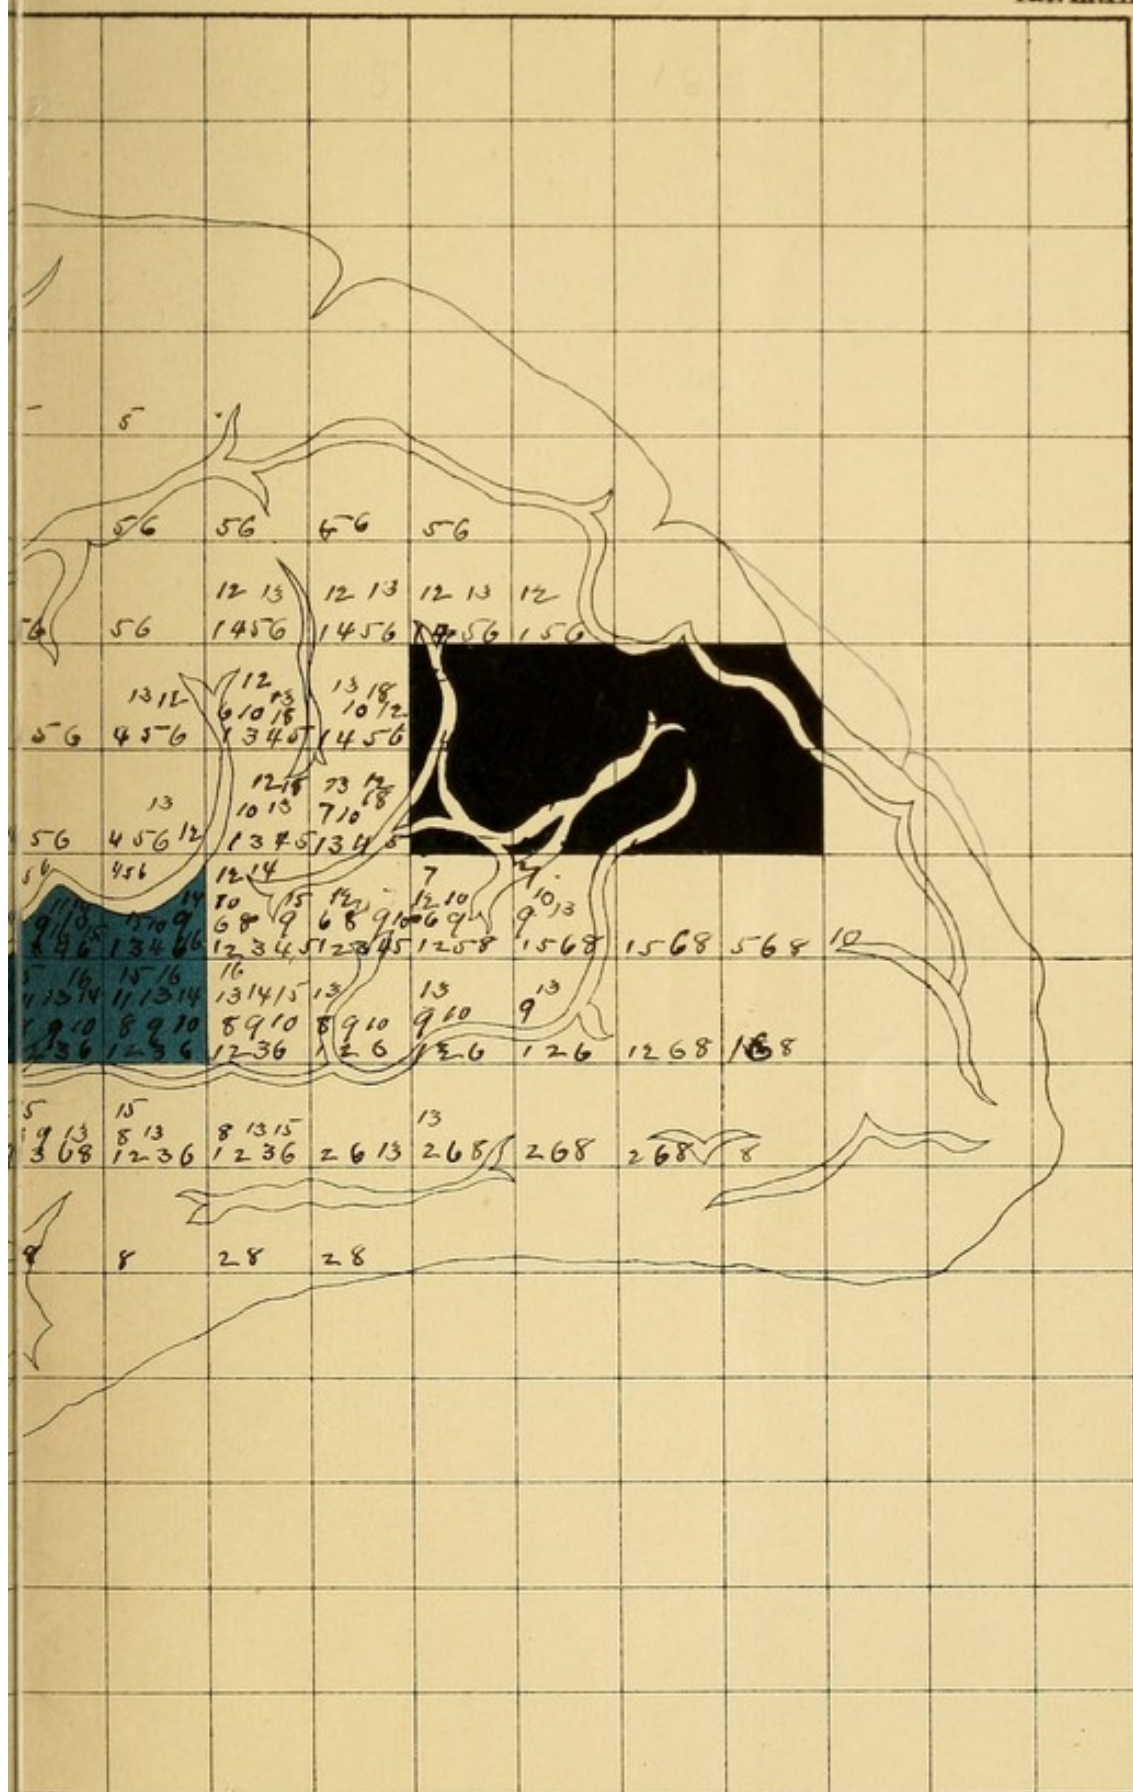 5
56 56 56 56
12 13 12 13 12 13 12
6 56 1456 1456 156
12
13 12 13 13 18
6 10 18 10 12
56 456 1345 1456
12 18 13 12
13 10 13 7 10 18
56 456 12 1345 134 5
56 456 12 14 7
14 10 15 12 12 10 10 13
9 68 9 68 9 10 69 9
1346 12345 12345 1258 1568 1568 568 10
16 15 16 16
13 14 11 13 14 13 14 15 13 13 13
9 10 8 9 10 8 9 10 8 9 10 9 10 9
236 1236 1236 126 126 126 1268 8
5 15 13
9 13 8 13 8 13 15
368 1236 1236 26 13 268 268 268 8
8 8 28 28